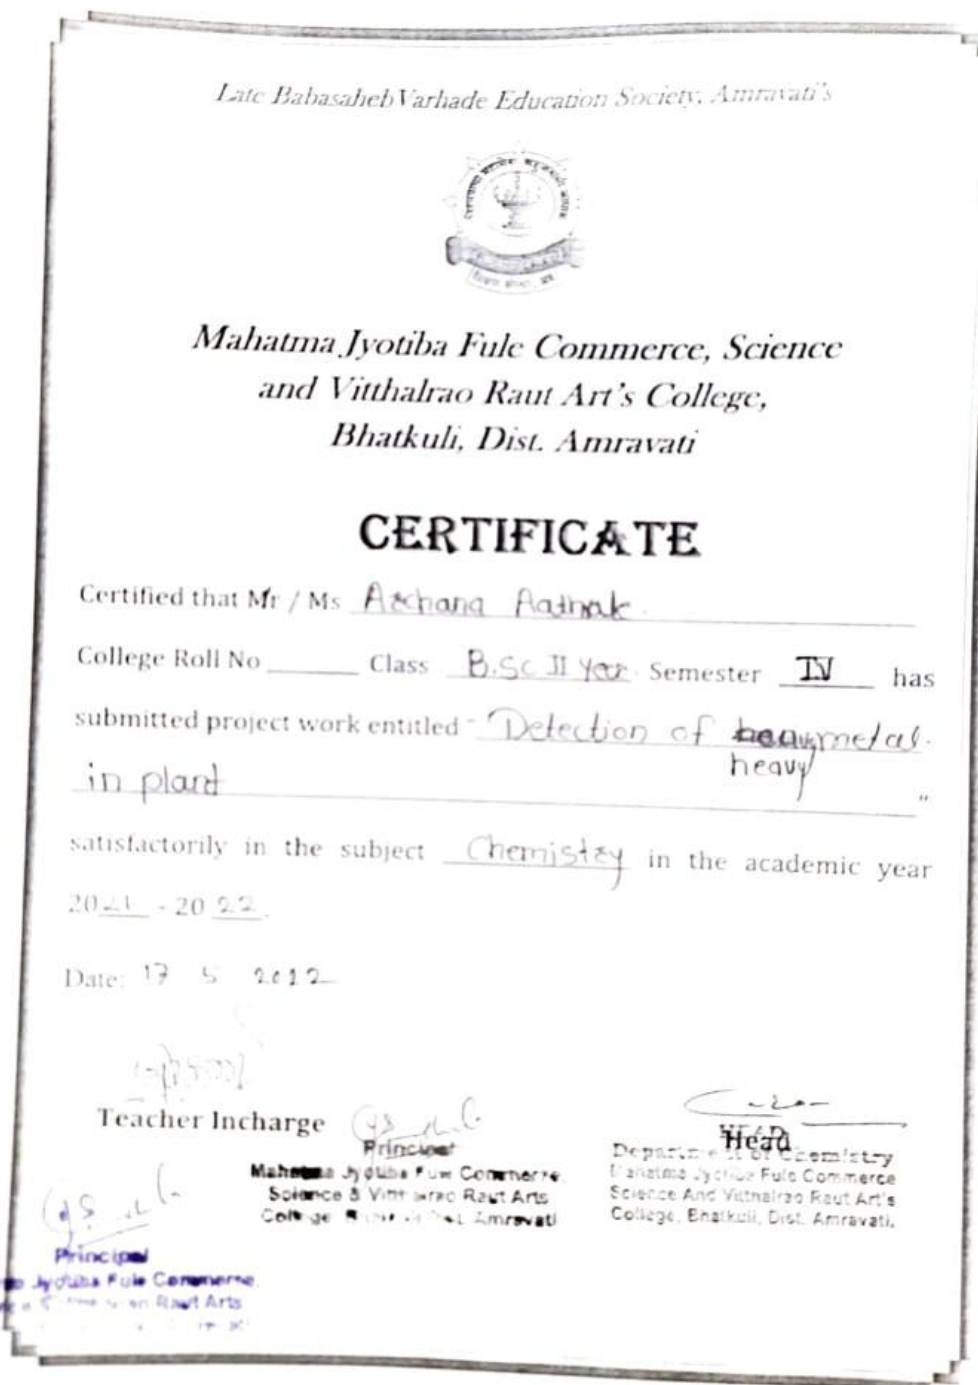 Late Babasaheb Varhade Education Society, Amravati's
Mahatma Jyotiba Fule Commerce, Science
and Vitthalrao Raut Art's College,
Bhatkuli, Dist. Amravati
CERTIFICATE
Certified that Mr / Ms Archana
College Roll No Class B.Sc II Year Semester IV has
submitted project work entitled " Detection of heavy metal
in plant "
satisfactorily in the subject Chemistry in the academic year
2021 - 2022.
Date: 17 5 2022
Teacher Incharge
Principal
Mahatma Jyotiba Fule Commerce,
Science & Raut Arts
College Amravati
Head
Department of Chemistry
Mahatma Jyotiba Fule Commerce
Science And Vitthalrao Raut Art's
College, Bhatkuli, Dist. Amravati.
Principal
Jyotiba Fule Commerce,
Raut Arts